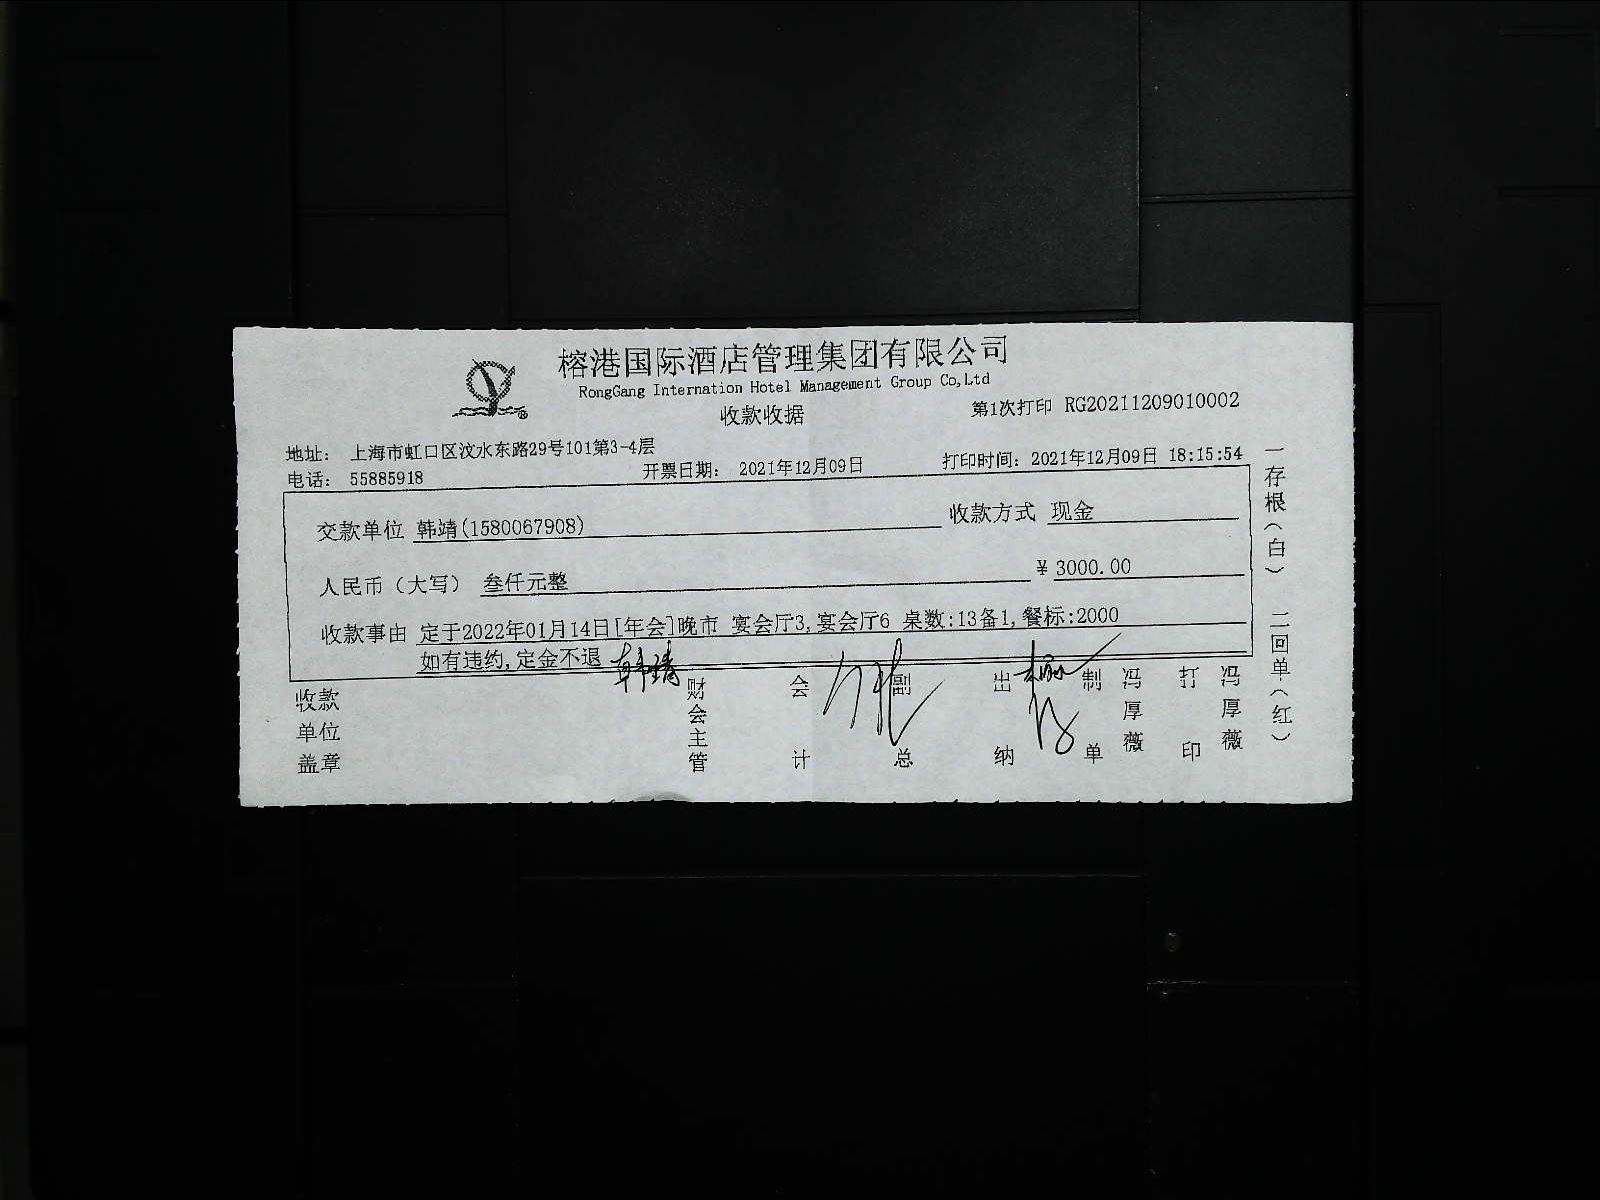 榕港国际酒店管理集团有限公司
RongGang Internation Hotel Management Group Co,Ltd
收款收据
第1次打印 RG20211209010002
地址: 上海市虹口区汶水东路29号101第3-4层
电话: 55885918
开票日期: 2021年12月09日
打印时间: 2021年12月09日 18:15:54
交款单位 韩靖(1580067908)
收款方式 现金
人民币（大写） 叁仟元整
¥ 3000.00
收款事由 定于2022年01月14日[年会]晚市 宴会厅3,宴会厅6 桌数:13备1,餐标:2000
如有违约,定金不退 韩靖
收款单位盖章
财会主管
会计
副总
出纳
制单 冯厚薇
打印 冯厚薇
一存根(白) 二回单(红)